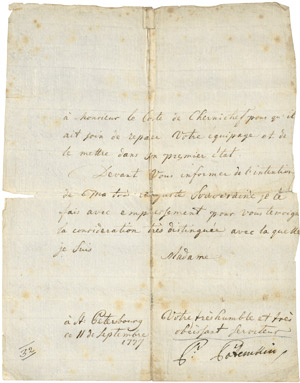 à monsieur le Cote de Chernichef pour qu'il
ait soin de reparer Votre equipage et de
le mettre dans son premier état
Devant Vous informer de l'intention
de Ma très auguste Souveraine je le
fais avec empressement pour vous temoigner
la consideration très distinguée avec la quelle
je suis
Madame
à St Petersbourg
ce 11 de Septembre
1777
Votre très humble et très
obeissant Serviteur
P. Potemkin